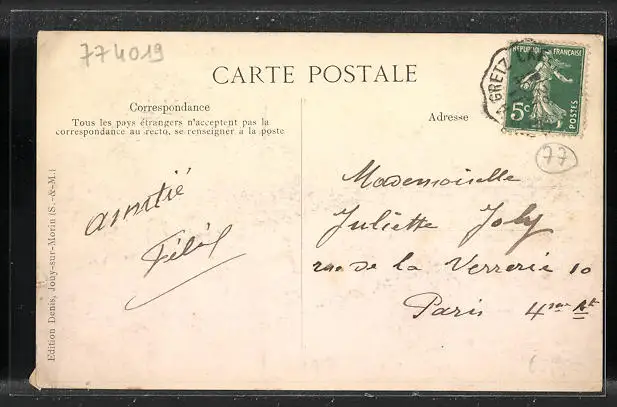 774019
CARTE POSTALE
Correspondance
Tous les pays étrangers n'acceptent pas la
correspondance au recto, se renseigner à la poste
Adresse
RÉPUBLIQUE FRANÇAISE
5c
POSTES
GRETZ
77
amitié
Mademoiselle
Juliette Joly
rue de la Verrerie 10
Paris 4me
Edition Denis, Jouy-sur-Morin (S.-&-M.)